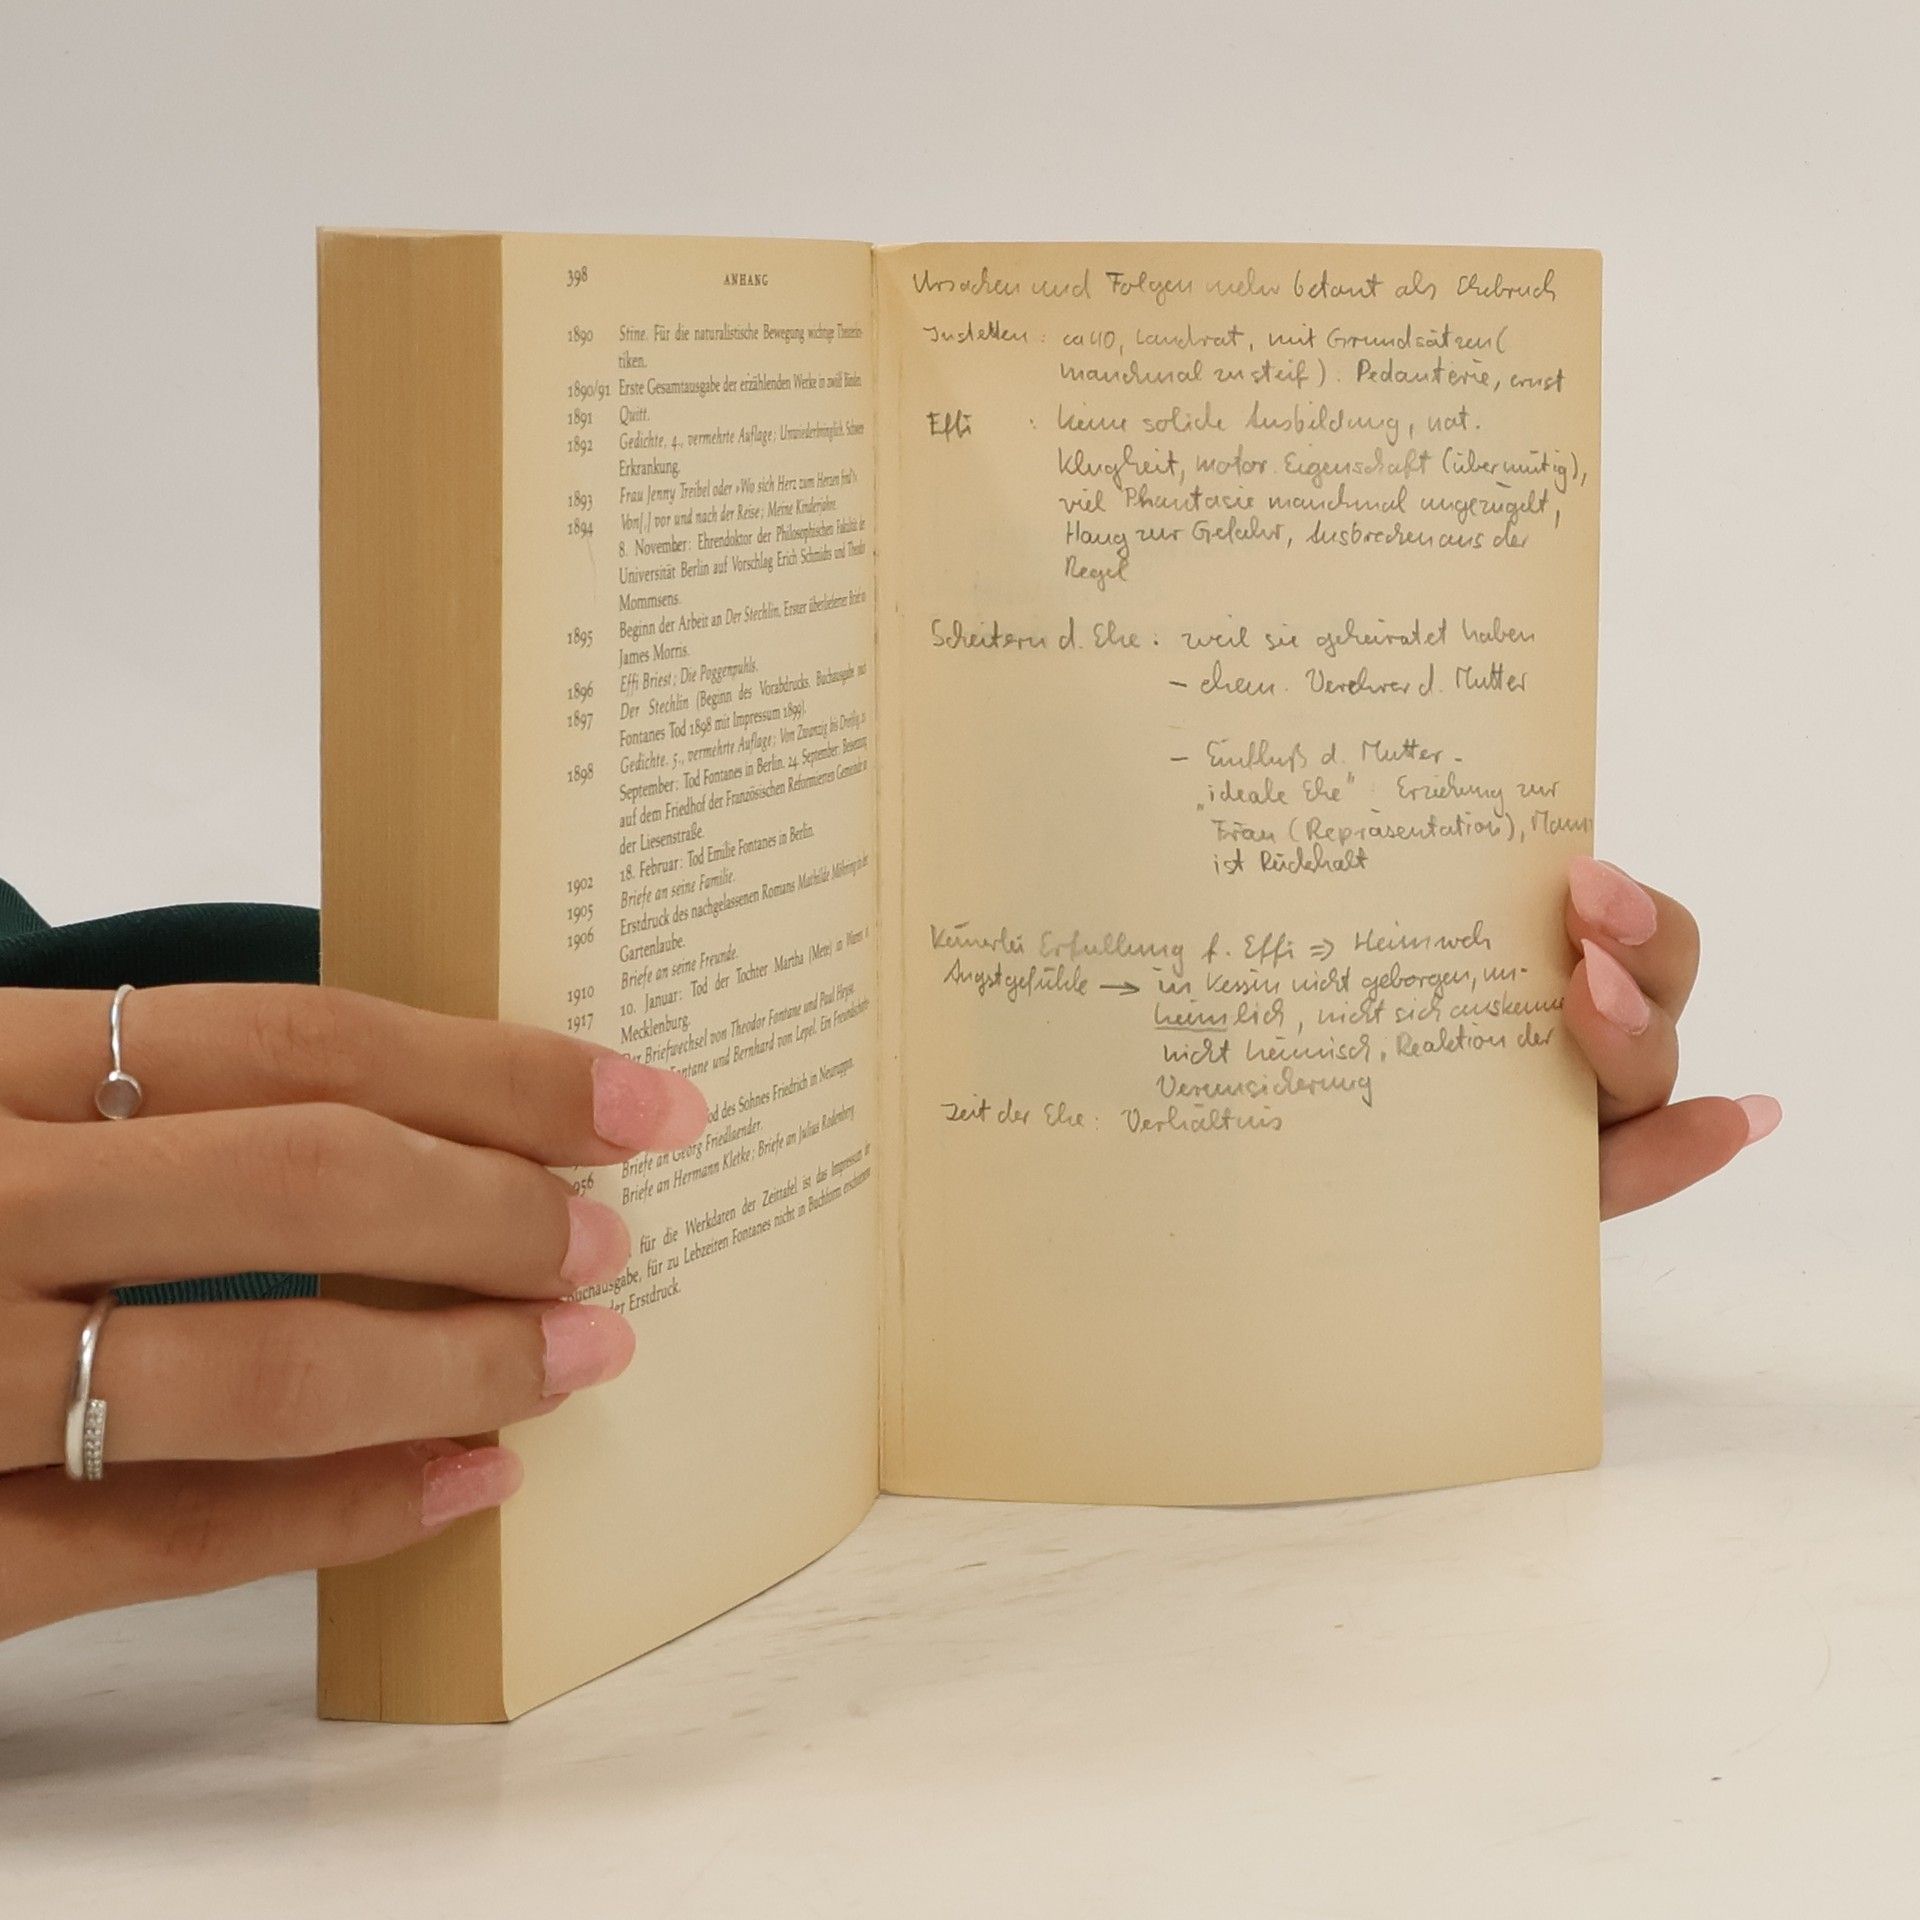 398 ANHANG
1890 Stine. Für die naturalistische Bewegung wichtige
tiken.
1890/91 Erste Gesamtausgabe der erzählenden Werke in zwölf Bänden.
1891 Quitt.
1892 Gedichte, 4., vermehrte Auflage; Unwiederbringlich. Schwere
Erkrankung.
1893 Frau Jenny Treibel oder »Wo sich Herz zum Herzen find't«.
1894 Von[,] vor und nach der Reise; Meine Kinderjahre.
8. November: Ehrendoktor der Philosophischen Fakultät der
Universität Berlin auf Vorschlag Erich Schmidts und Theodor
Mommsens.
1895 Beginn der Arbeit an Der Stechlin. Erster überlieferter Brief an
James Morris.
1896 Effi Briest; Die Poggenpuhls.
1897 Der Stechlin (Beginn des Vorabdrucks. Buchausgabe nach
Fontanes Tod 1898 mit Impressum 1899).
1898 Gedichte, 5., vermehrte Auflage; Von Zwanzig bis Dreißig. 20.
September: Tod Fontanes in Berlin. 24. September: Beisetzung
auf dem Friedhof der Französischen Reformierten Gemeinde in
der Liesenstraße.
1902 18. Februar: Tod Emilie Fontanes in Berlin.
1905 Briefe an seine Familie.
1906 Erstdruck des nachgelassenen Romans Mathilde Möhring in der
Gartenlaube.
1910 Briefe an seine Freunde.
1917 10. Januar: Tod der Tochter Martha (Mete) in Waren in
Mecklenburg.
Der Briefwechsel von Theodor Fontane und Paul Heyse.
Fontane und Bernhard von Lepel. Ein Freundschafts
des Sohnes Friedrich in Neuruppin.
Briefe an Georg Friedlaender.
956 Briefe an Hermann Kletke; Briefe an Julius Rodenberg
für die Werkdaten der Zeittafel ist das Impressum der
Buchausgabe, für zu Lebzeiten Fontanes nicht in Buchform erschienene
der Erstdruck.
Ursachen und Folgen mehr betont als Ehebruch
Instetten : ca 40, Landrat, mit Grundsätzen (
manchmal zu steif). Pedanterie, ernst
Effi : keine solide Ausbildung, nat.
Klugheit, motor. Eigenschaft (übermütig),
viel Phantasie manchmal ungezügelt,
Hang zur Gefahr, Ausbrechen aus der
Regel
Scheitern d. Ehe : weil sie geheiratet haben
- ehem. Verehrer d. Mutter
- Einfluß d. Mutter -
„ideale Ehe" : Erziehung zur
Frau (Repräsentation), Mann
ist Rückhalt
Keinerlei Erfüllung f. Effi => Heimweh
Angstgefühle → in Kessin nicht geborgen, un-
heimlich, nicht sich auskennen
nicht heimisch, Reaktion der
Verunsicherung
Zeit der Ehe : Verhältnis